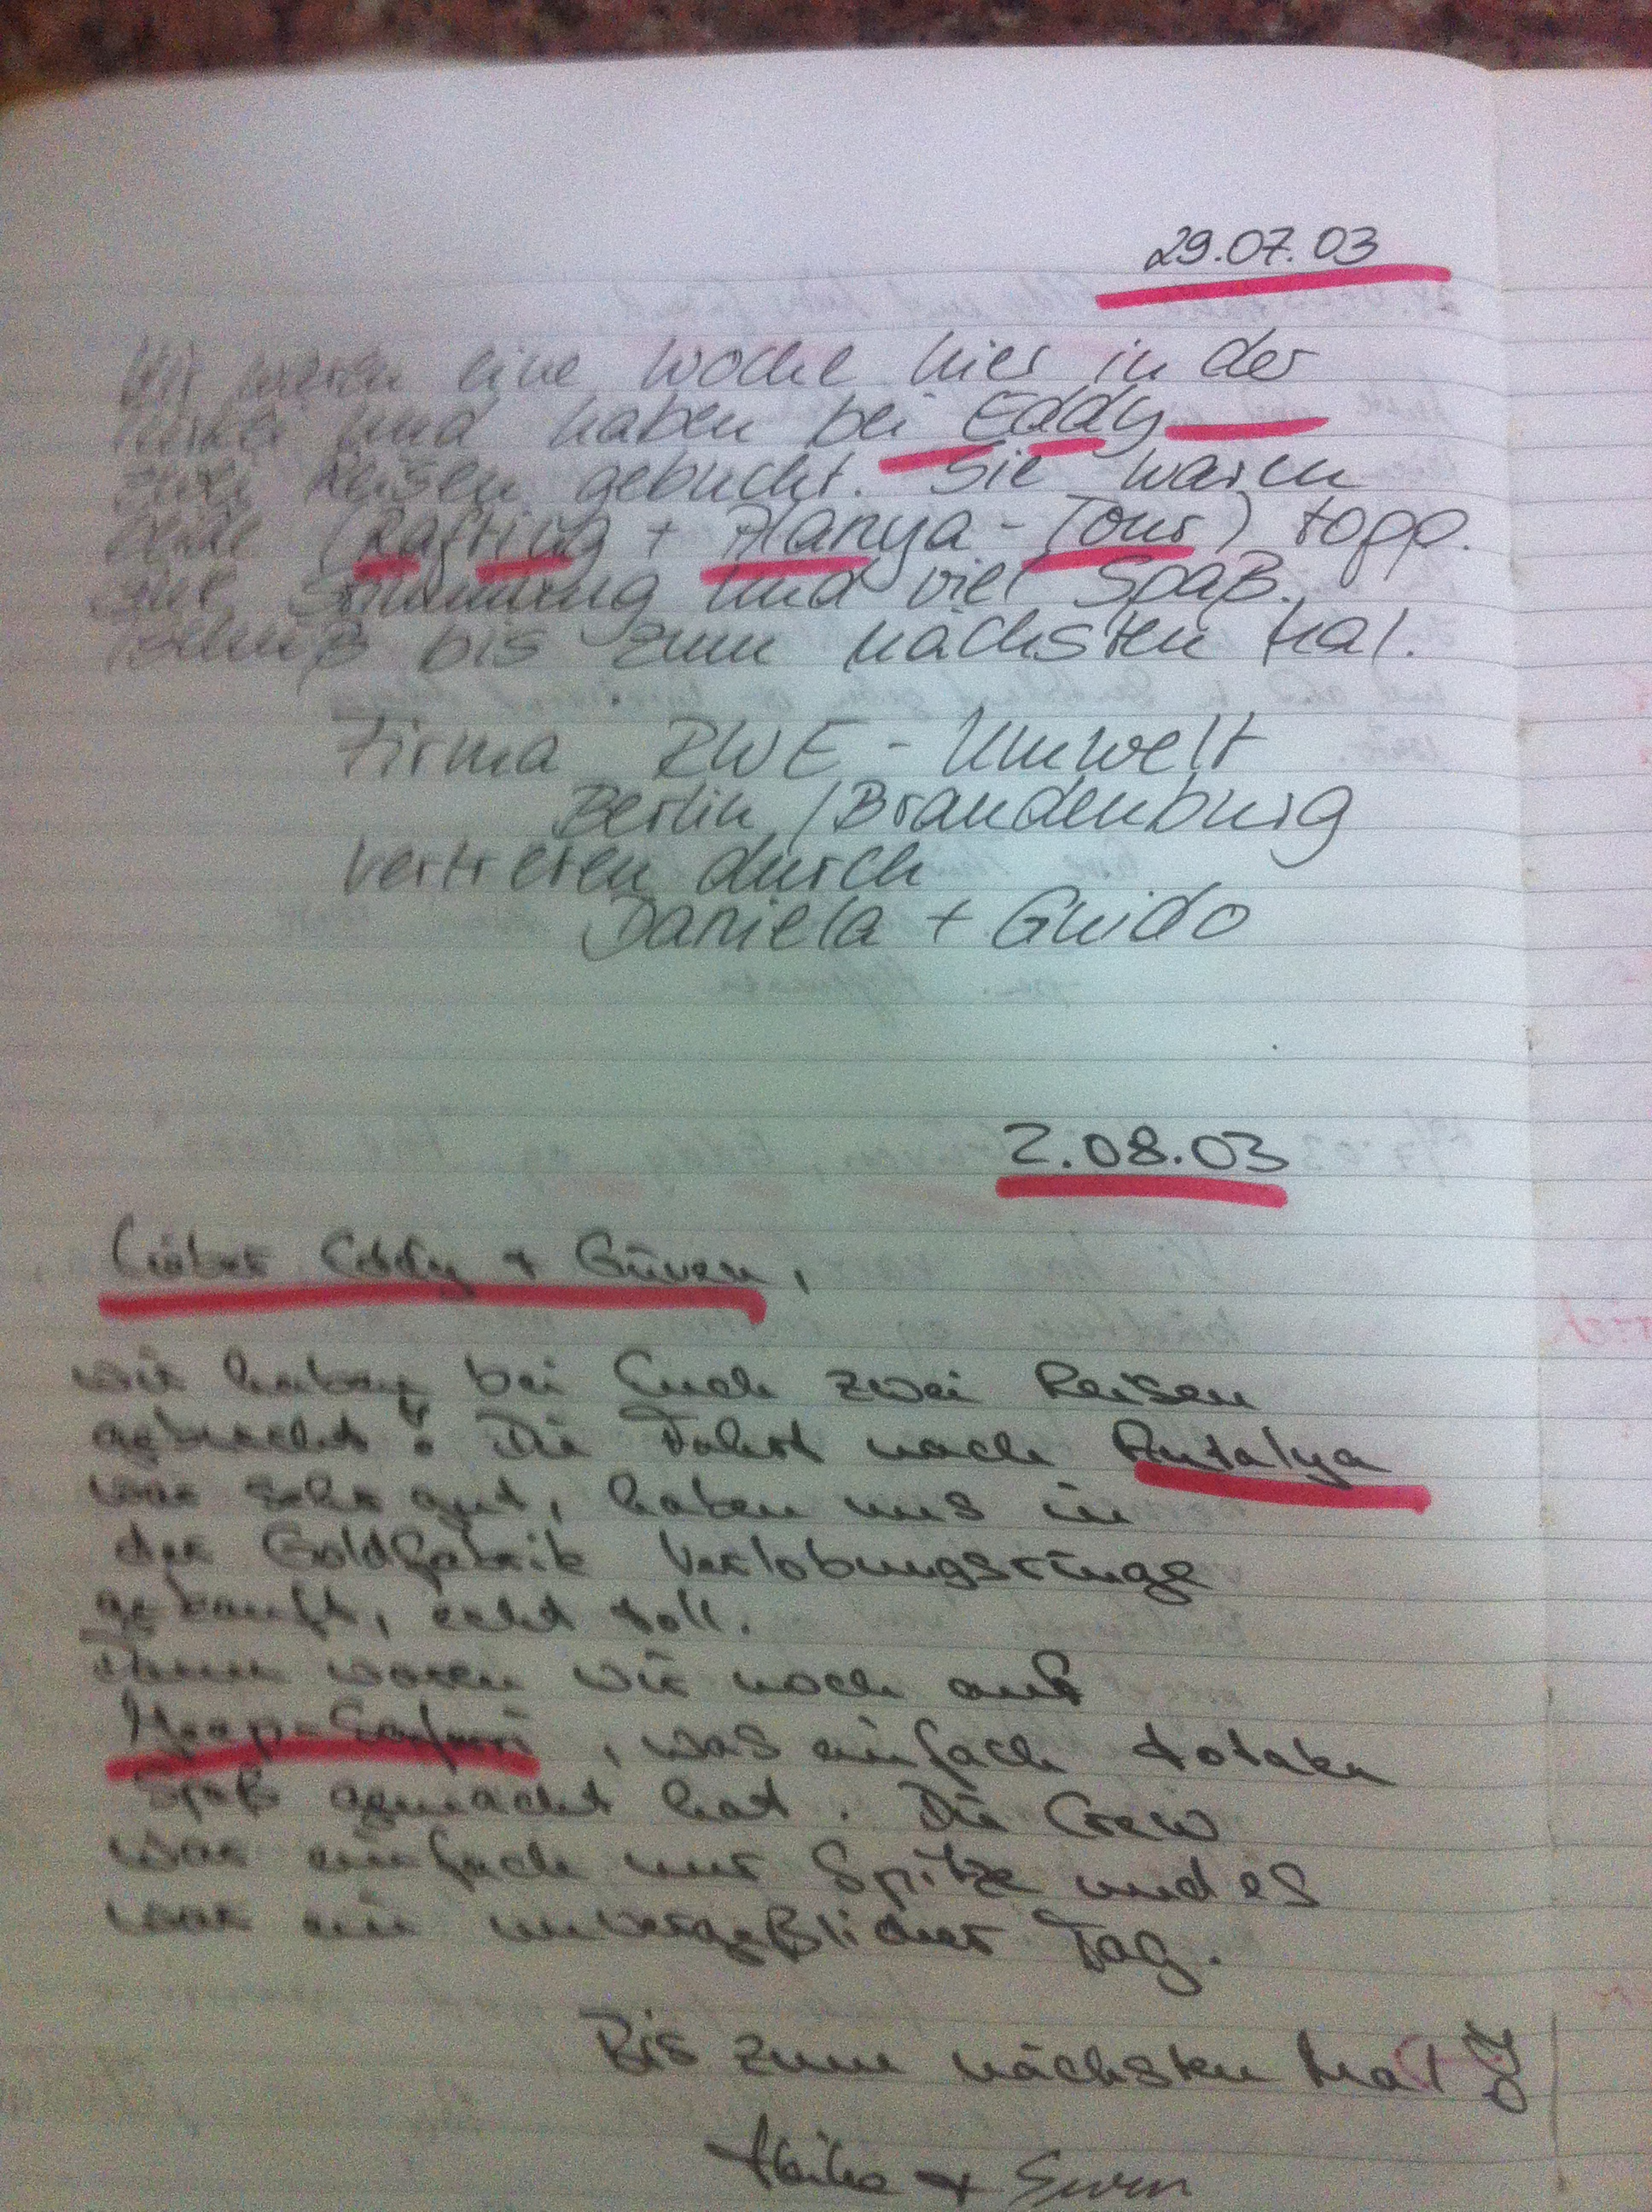 29.07.03
Wir waren eine Woche hier in der
Türkei und haben bei Eddy
zwei Reisen gebucht. Sie waren
beide (Rafting + Alanya-Tour) topp.
gute Stimmung und viel Spaß.
Tschüß bis zum nächsten Mal.
Firma RWE-Umwelt
Berlin/Brandenburg
vertreten durch
Daniela + Guido
2.08.03
Lieber Eddy + Güven,
wir haben bei Euch zwei Reisen
gebucht! Die Fahrt nach Antalya
war sehr gut, haben uns in
der Goldfabrik Verlobungsringe
gekauft, echt toll.
Dann waren wir noch auf
Jeep-Safari, was einfach totalen
Spaß gemacht hat. Die Crew
war einfach nur Spitze und es
war ein unvergeßlicher Tag.
Bis zum nächsten Mal
Heike + Sven